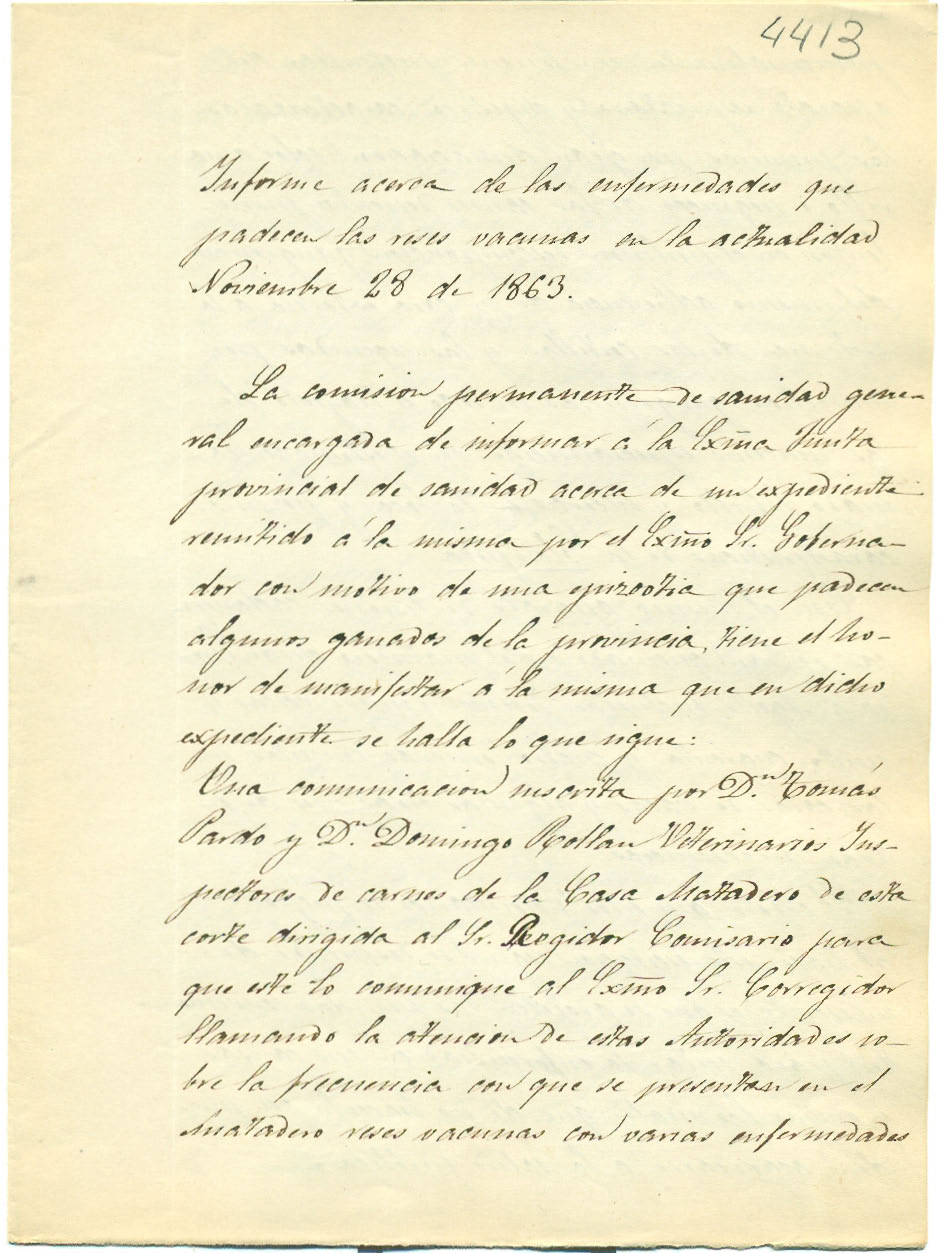 4413
Informe acerca de las enfermedades que
padecen las reses vacunas en la actualidad
Noviembre 28 de 1863.
La comision permanente de sanidad gene-
ral encargada de informar á la Exm̃a Junta
provincial de sanidad acerca de un expediente
remitido á la misma por el Exm̃o Sr. Goberna-
dor con motivo de una epizootia que padecen
algunos ganados de la provincia, tiene el ho-
nor de manifestar á la misma que en dicho
expediente se halla lo que sigue:
Una comunicacion suscrita por D.n Tomás
Pardo y D.n Domingo Rollan Veterinarios Ins-
pectores de carnes de la Casa Matadero de esta
corte dirigida al Sr. Regidor Comisario para
que este lo comunique al Exm̃o Sr. Corregidor
llamando la atencion de estas Autoridades so-
bre la frecuencia con que se presentan en el
Matadero reses vacunas con varias enfermedades